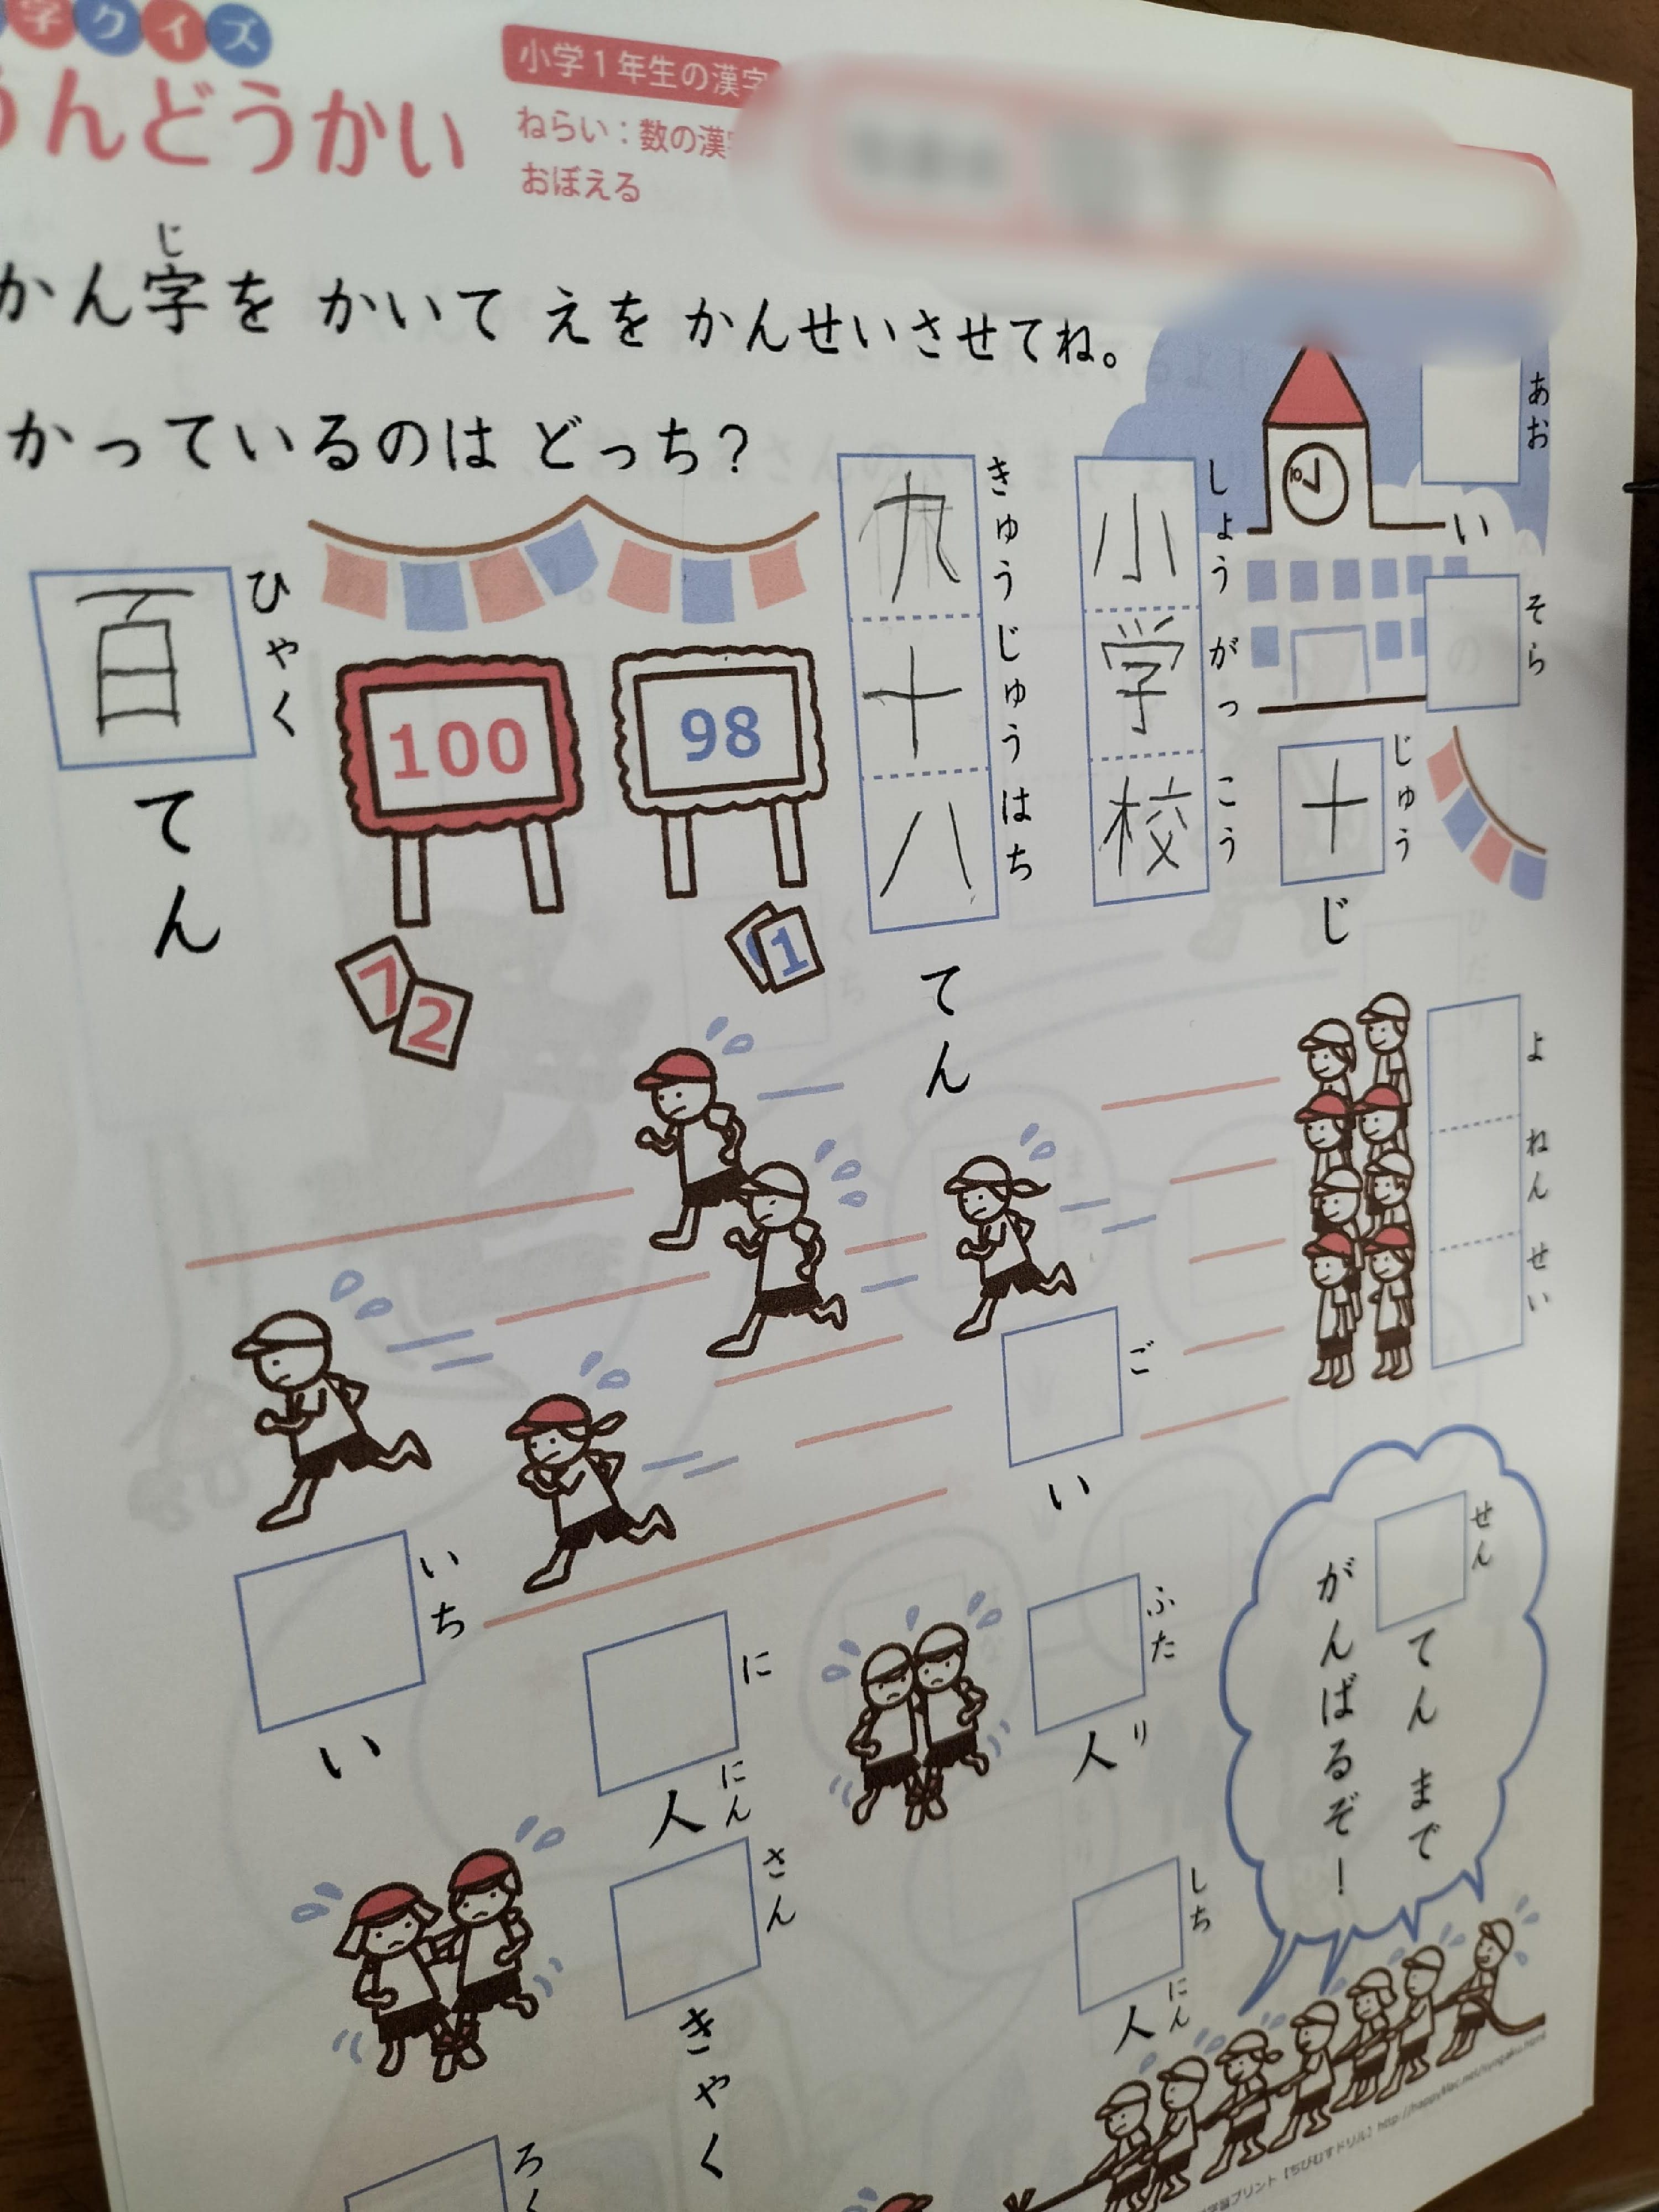 字クイズ
うんどうかい
小学1年生の漢字
ねらい：数の漢字
おぼえる
かん字を かいて えを かんせいさせてね。
じ
かっているのは どっち？
あお
い
そら
じゅう
十
じ
しょうがっこう
小学校
きゅうじゅうはち
九十八
てん
98
100
ひゃく
百
てん
1
7
2
10
よねんせい
ご
い
いち
い
せん
てん まで
がんばるぞ！
ふた
人
り
に
人
にん
さん
きゃく
しち
人
にん
ろく
学習プリント【ちびむすドリル】http://happylilac.net/syogaku.html